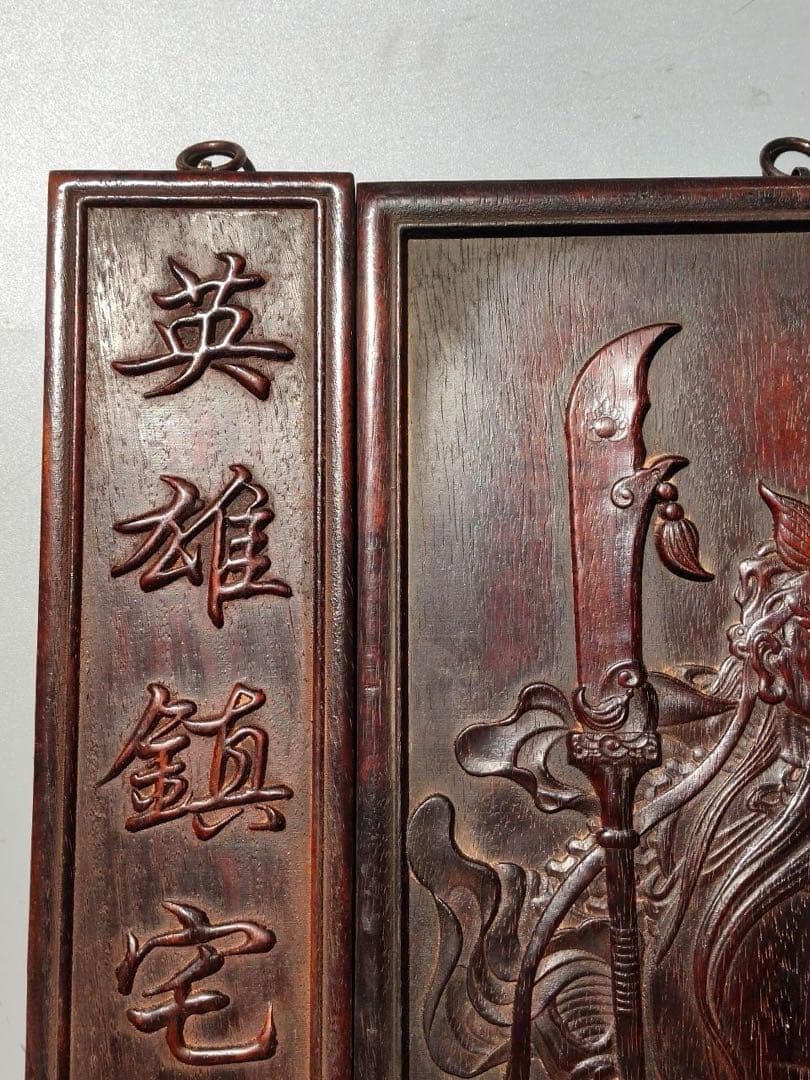 英雄鎮宅